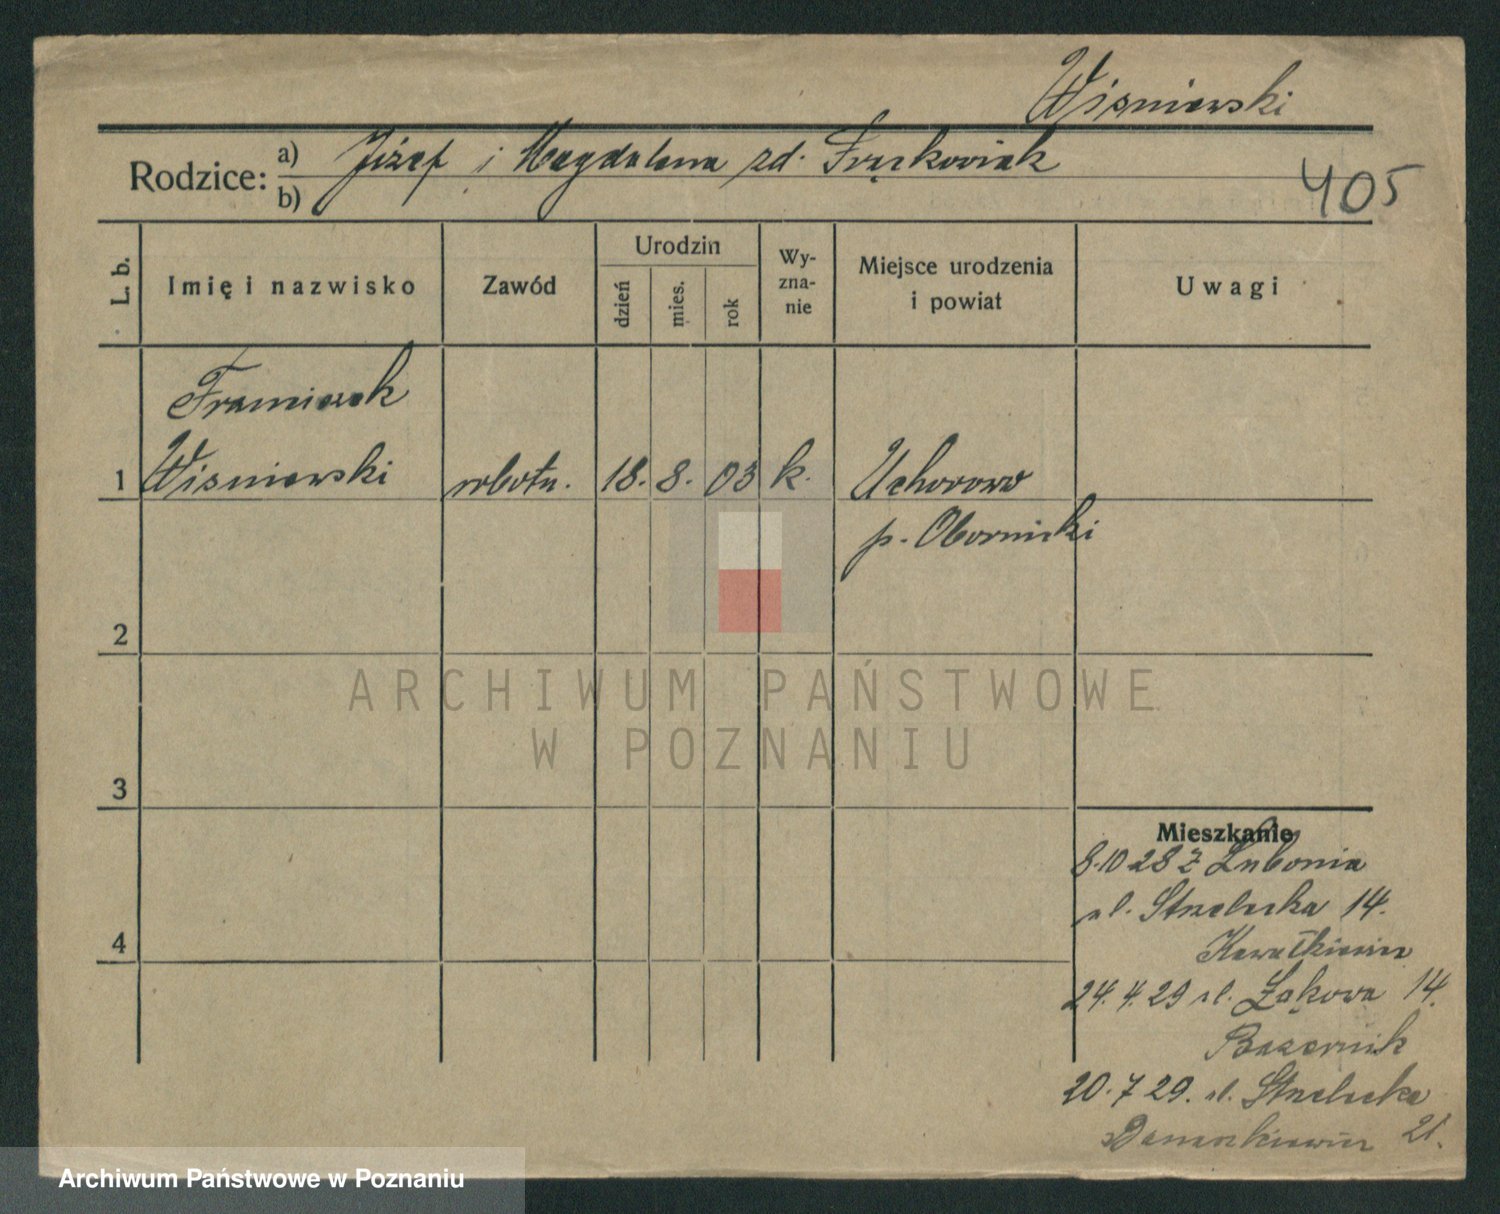 Wiśniewski
Rodzice: a) Józef i Magdalena zd. Frąckowiak
b)
405
L. b.
Imię i nazwisko
Zawód
Urodzin
dzień
mies.
rok
Wy-
zna-
nie
Miejsce urodzenia
i powiat
Uwagi
Franciszek
1 Wiśniewski robotn. 18. 8. 03 k. Uchorowo
p. Obornicki
2
ARCHIWUM PAŃSTWOWE
W POZNANIU
3
Mieszkanie
8.10 28 z Lubonia
ul. Strzelecka 14.
4
24. 4. 29 ul. Łąkowa 14.
20. 7 29. ul. Strzelecka
21.
Archiwum Państwowe w Poznaniu